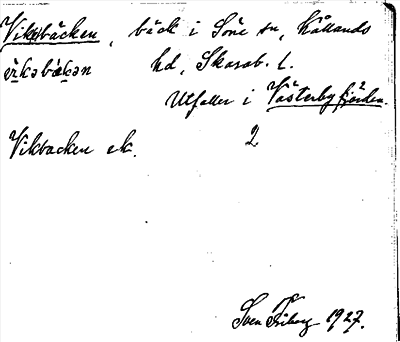 Viksbäcken, bäck i Söne sn, Kållands
vikəbäkən hd, Skarab. l.
Utfaller i Västerbyfjorden.
Vikbacken ek. 2
Sven Friberg 1927.